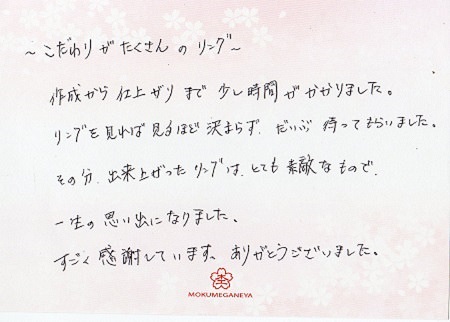 ～こだわりがたくさんのリング～
作成から仕上がりまで少し時間がかかりました。
リングを見れば見るほど決まらず、だいぶ待ってもらいました。
その分、出来上がったリングは、とても素敵なもので、
一生の思い出になりました。
すごく感謝しています。ありがとうございました。
MOKUMEGANEYA